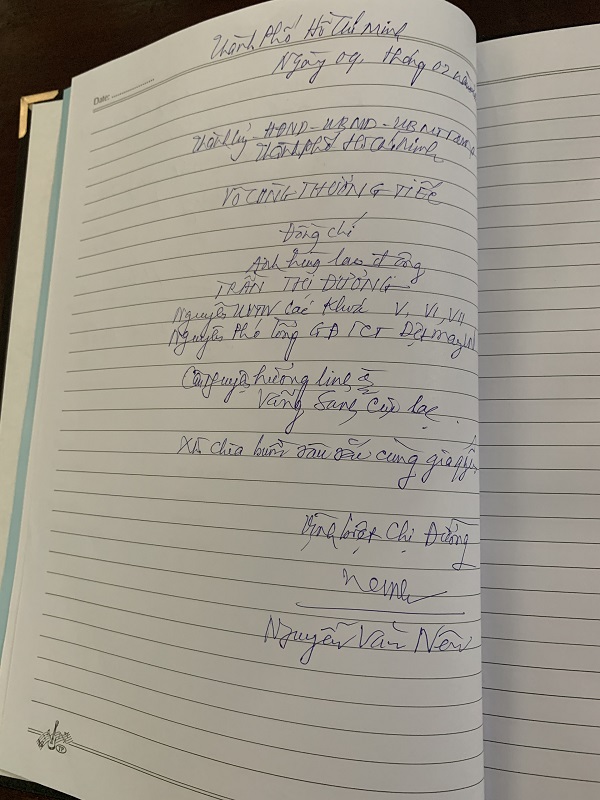 Thành Phố Hồ Chí Minh
Ngày 09, tháng 02 năm
Date:
Thành ủy - HĐND - UBND - UBMTTQVN
Thành phố Hồ Chí Minh
VÔ CÙNG THƯƠNG TIẾC
Đồng chí
Anh hùng lao động
TRẦN THỊ ĐƯỜNG
Nguyên UVTW các Khoá V, VI, VII
Nguyên Phó Tổng GĐ TCT Dệt may VN
Cầu nguyện hương linh
Vãng Sang Cực lạc.
Xin chia buồn sâu sắc cùng gia quyến
Vĩnh biệt Chị Đường
Nguyễn Văn Nên